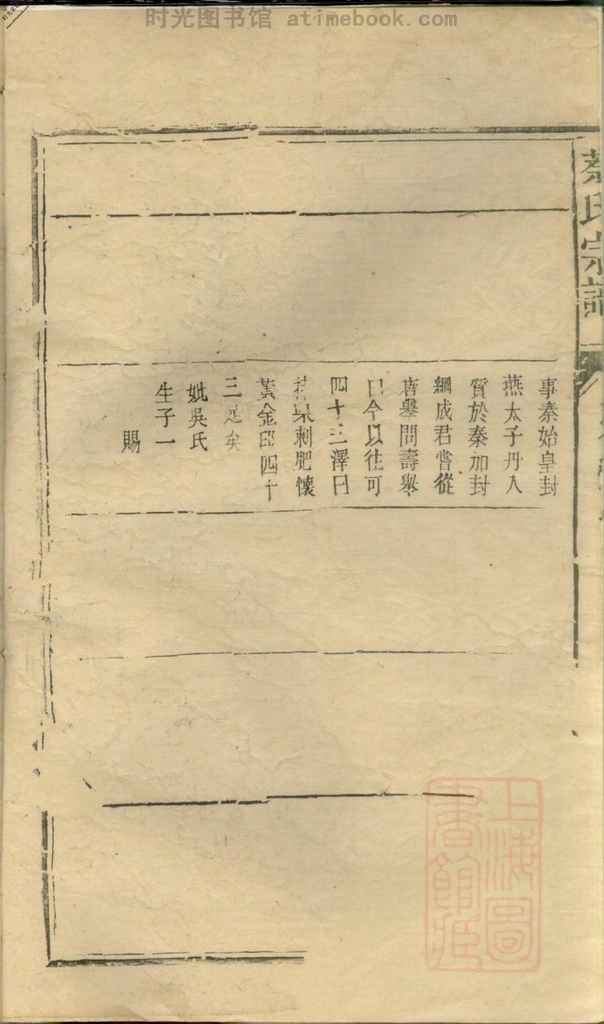 时光图书馆 atimebook.com
蔡氏宗譜
事秦始皇封
燕太子丹入
質於秦加封
綱成君嘗從
唐舉問壽舉
曰今以往可
四十三澤曰
持粱刺肥懷
黃金印四十
三足矣
妣吳氏
生子一
賜
上海圖
書館藏